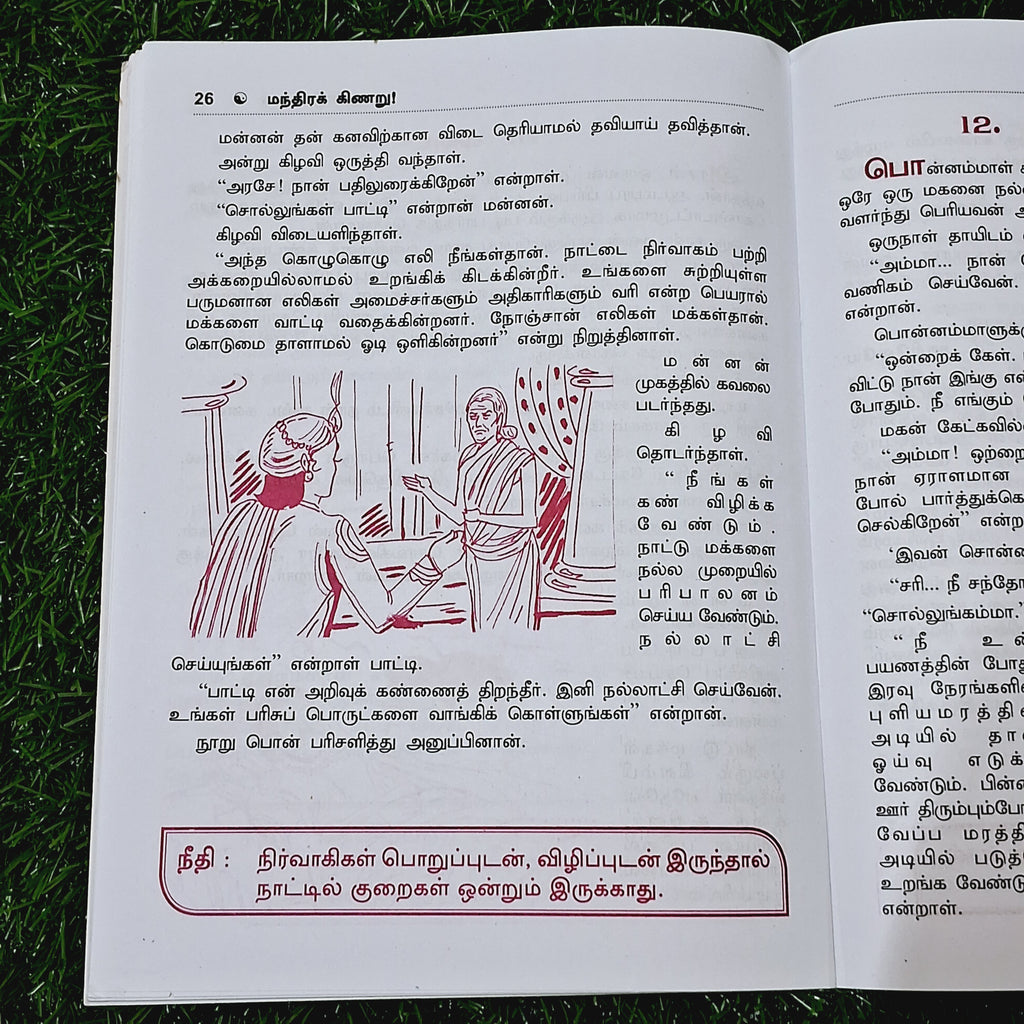 26 ☯ மந்திரக் கிணறு!
மன்னன் தன் கனவிற்கான விடை தெரியாமல் தவியாய் தவித்தான்.
அன்று கிழவி ஒருத்தி வந்தாள்.
“அரசே! நான் பதிலுரைக்கிறேன்” என்றாள்.
“சொல்லுங்கள் பாட்டி” என்றான் மன்னன்.
கிழவி விடையளிந்தாள்.
“அந்த கொழுகொழு எலி நீங்கள்தான். நாட்டை நிர்வாகம் பற்றி
அக்கறையில்லாமல் உறங்கிக் கிடக்கின்றீர். உங்களை சுற்றியுள்ள
பருமனான எலிகள் அமைச்சர்களும் அதிகாரிகளும் வரி என்ற பெயரால்
மக்களை வாட்டி வதைக்கின்றனர். நோஞ்சான் எலிகள் மக்கள்தான்.
கொடுமை தாளாமல் ஓடி ஒளிகின்றனர்” என்று நிறுத்தினாள்.
மன்னன்
முகத்தில் கவலை
படர்ந்தது.
கிழவி
தொடர்ந்தாள்.
“நீங்கள்
கண் விழிக்க
வேண்டும்.
நாட்டு மக்களை
நல்ல முறையில்
பரிபாலனம்
செய்ய வேண்டும்.
நல்லாட்சி
செய்யுங்கள்” என்றாள் பாட்டி.
“பாட்டி என் அறிவுக் கண்ணைத் திறந்தீர். இனி நல்லாட்சி செய்வேன்.
உங்கள் பரிசுப் பொருட்களை வாங்கிக் கொள்ளுங்கள்” என்றான்.
நூறு பொன் பரிசளித்து அனுப்பினான்.
நீதி : நிர்வாகிகள் பொறுப்புடன், விழிப்புடன் இருந்தால்
நாட்டில் குறைகள் ஒன்றும் இருக்காது.
12.
பொன்னம்மாள்
ஒரே ஒரு மகனை
வளர்ந்து பெரியவன்
ஒருநாள் தாயிடம்
“அம்மா... நான்
வணிகம் செய்வேன்.
என்றான்.
“ஒன்றைக் கேள்.
விட்டு நான் இங்கு
போதும். நீ எங்கும்
மகன்
“அம்மா!
நான் ஏராளமான
போல்
செல்கிறேன்”
‘இவன்
“சரி... நீ
“சொல்லுங்கம்மா.
“நீ
பயணத்தின்
இரவு
அடியில்
ஓய்வு
வேண்டும்.
ஊர்
வேப்ப
அடியில்
உறங்க
என்றாள்.